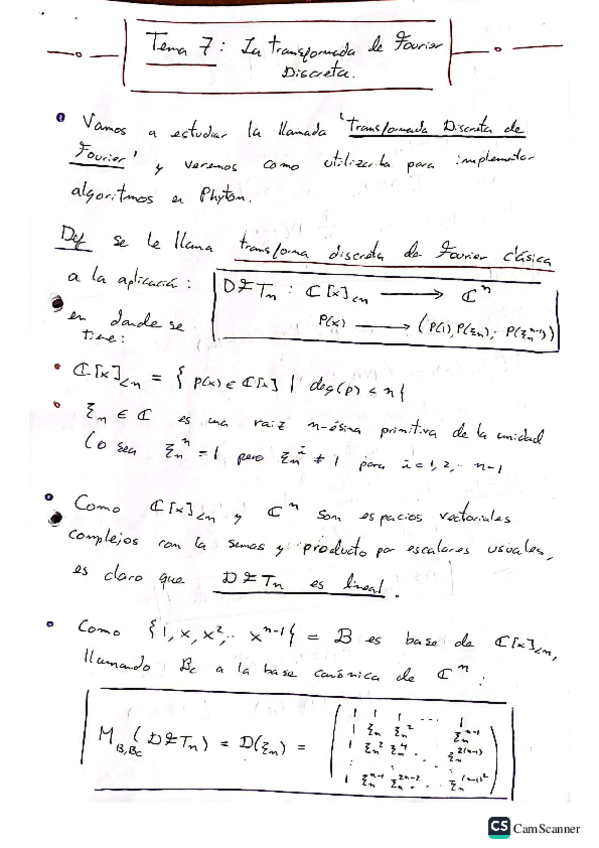 Tema 7: La transformada de Fourier
Discreta.
Vamos a estudiar la llamada 'Transformada Discreta de
Fourier' y veremos como utilizarla para implementar
algoritmos en Phyton.
Def se le llama transforma discreta de Fourier clásica
a la aplicación: DFTn : ℂ[x]<n ⟶ ℂⁿ
en donde se P(x) ⟶ (P(1), P(ξn), ·· P(ξn^{n-1}))
tiene:
• ℂ[x]<n = { p(x) ∈ ℂ[x] | deg(p) < n {
• ξn ∈ ℂ es una raiz n-ésima primitiva de la unidad
(o sea ξn^n = 1 pero ξn^i ≠ 1 para i = 1, 2, ·· n-1
• Como ℂ[x]<n y ℂⁿ son espacios vectoriales
complejos con la sumas y producto por escalares usuales,
es claro que DFTn es lineal.
• Como {1, x, x², ·· x^{n-1}{ = B es base de ℂ[x]<n,
llamando Bc a la base canónica de ℂⁿ:
M_{B,Bc}(DFTn) = D(ξn) =
1 1 1 ... 1
1 ξn ξn² ξn^{n-1}
1 ξn² ξn⁴ ... ξn^{2(n-1)}
: : :
1 ξn^{n-1} ξn^{2n-2} ... ξn^{(n-1)²}
CS CamScanner